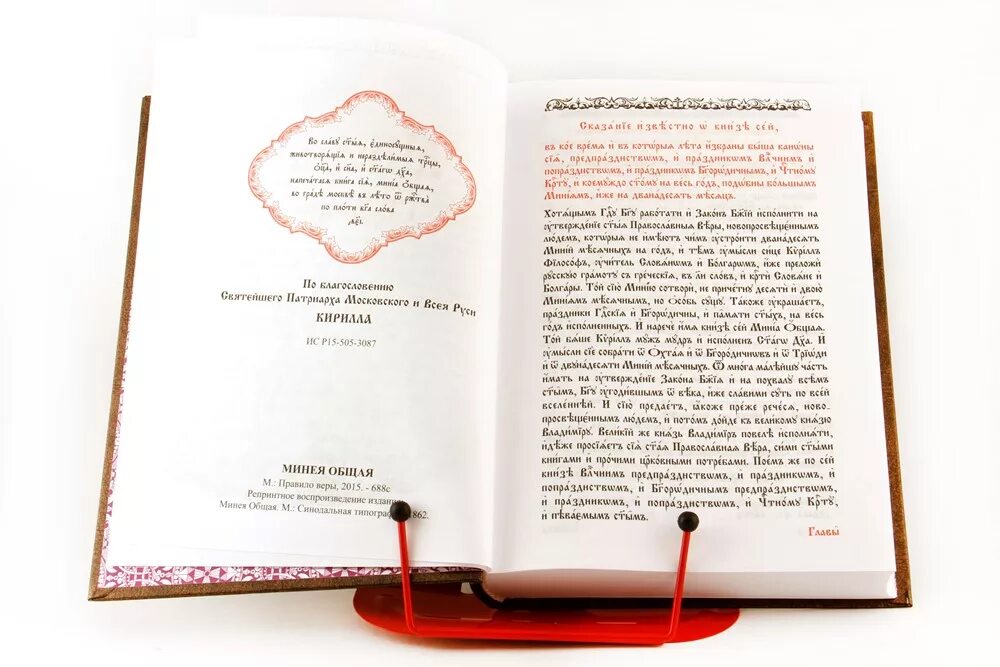 Во славꙋ ст҃ы́ѧ, є҆диносꙋ́щныѧ,
животворѧ́щїѧ и҆ нераздѣли́мыѧ трⷪ҇цы,
ѻ҆ц҃а̀, и҆ сн҃а, и҆ ст҃а́гѡ дх҃а,
напечатасѧ кни́га сїѧ̀, мині́а ѻ҆́бщаѧ,
во гра́дѣ москвѣ̀ въ лѣ́то ѿ ржⷭ҇тва̀
по пло́ти бг҃а сло́ва
По благословению
Святейшего Патриарха Московского и Всея Руси
КИРИЛЛА
ИС Р15-505-3087
МИНЕЯ ОБЩАЯ
М.: Правило веры, 2015. - 688с
Репринтное воспроизведение издани
Минея Общая. М.: Синодальная типограф 1862.
Сказа́нїе и҆звѣ́стно ѡ҆ кни́зѣ се́й,
въ ко́е вре́мѧ и҆ въ котѡ́рыѧ лѣ̑та и҆збра́ны бы́ша канѡ́ны
сїѧ̑, предпра́зднствѡмъ, и҆ пра́здникѡмъ влⷣчнимъ и҆
попра́зднствѡмъ, и҆ пра́здникѡмъ бг҃оро́дичнымъ, и҆ чтⷭ҇но́мꙋ
крⷭ҇тꙋ̀, и҆ коемꙋ́ждо ст҃о́мꙋ на ве́сь го́дъ, подѡ́бны больши̑мъ
мине́ѧмъ, и҆̀же на двана́десѧть мѣ́сѧцъ.
Хотѧ́щымъ гдⷭ҇ꙋ бг҃ꙋ рабо́тати и҆ зако́нъ бж҃їй и҆спо́лнити на
ᲂу҆твержде́нїе ст҃ы́ѧ правосла́вныѧ вѣ́ры, новопросвѣще́ннымъ
лю́демъ, котѡ́рыѧ не и҆мѣ́ютъ чи́мъ ᲂу҆стро́ити двана́десѧть
мині́й мѣ́сѧчныхъ на го́дъ, и҆ тѣ̑мъ ᲂу҆мы́сли си́це кѷрі́ллъ
фїлосо́фъ, ᲂу҆чи́тель словѧ́нѡмъ и҆ болга́рѡмъ, и҆́же преложѝ
рꙋ́сскꙋю гра́мотꙋ съ гре́ческїѧ, въ л҃и сло́въ, и҆ крⷭ҇тѝ слове́не и҆
болга́ры. То́й сїю̀ мині́ю сотворѝ, не причѐтнꙋ десѧтѝ и҆ двою̀
мине́ѧмъ мѣ́сѧчнымъ, но ѻ҆со́бь сꙋ́щꙋ. Та́коже ᲂу҆краша́етъ,
пра́здники гдⷭ҇скїѧ и҆ бг҃оро́дичны, и҆ па́мѧти ст҃ы́хъ, на ве́сь
го́дъ и҆спо́лненныхъ. И҆ нарече́ и҆́мѧ кни́зѣ се́й мині́а ѻ҆́бщаѧ.
То́й бѧ́ше кѷрі́ллъ мꙋ́жъ мꙋ́дръ и҆ и҆спо́лненъ ст҃а́гѡ дх҃а. И҆
ᲂу҆мы́сли сїѐ собра́ти ѿ ѻ҆хта́ѧ и҆ ѿ бг҃оро́дичновъ и҆ ѿ трїѡ́ди
и҆ ѿ двꙋна́десѧти мині́й мѣ́сѧчныхъ. Ѿ мно́га малѣ́йшꙋ ча́сть
и҆ма́ть на ᲂу҆твержде́нїе зако́на бж҃їѧ и҆ на похва́лꙋ всѣ̑мъ
ст҃ы́мъ, бг҃ꙋ ᲂу҆годи́вшымъ ѿ вѣ́ка, и҆̀же сла́вими сꙋ́ть по все́й
вселе́ннѣй. И҆ сїю̀ предае́тъ, ꙗ҆́коже пре́же рече́сѧ, ново-
просвѣще́ннымъ лю́демъ, и҆ пото́мъ до́йде къ вели́комꙋ кнѧ́зю
влади́мїрꙋ. Вели́кїй же кнѧ́зь влади́мїръ повелѣ̀ и҆сполнѧ́ти,
и҆дѣ́же просїѧ́етъ сїѧ̀ ст҃а́ѧ правосла́внаѧ вѣ́ра, си́ми ст҃ы́ми
кни́гами и҆ про́чими цр҃ко́вными потре́бами. Пое́мъ же по се́й
кни́зѣ влⷣчнимъ предпра́зднствѡмъ, и҆ пра́здникѡмъ, и҆
попра́зднствѡмъ, и҆ бг҃оро́дичнымъ предпра́зднствѡмъ,
и҆ пра́здникѡмъ, и҆ попра́зднствѡмъ, и҆ чтⷭ҇но́мꙋ крⷭ҇тꙋ̀,
и҆ пѣва́емымъ ст҃ы́мъ.
Главы̀